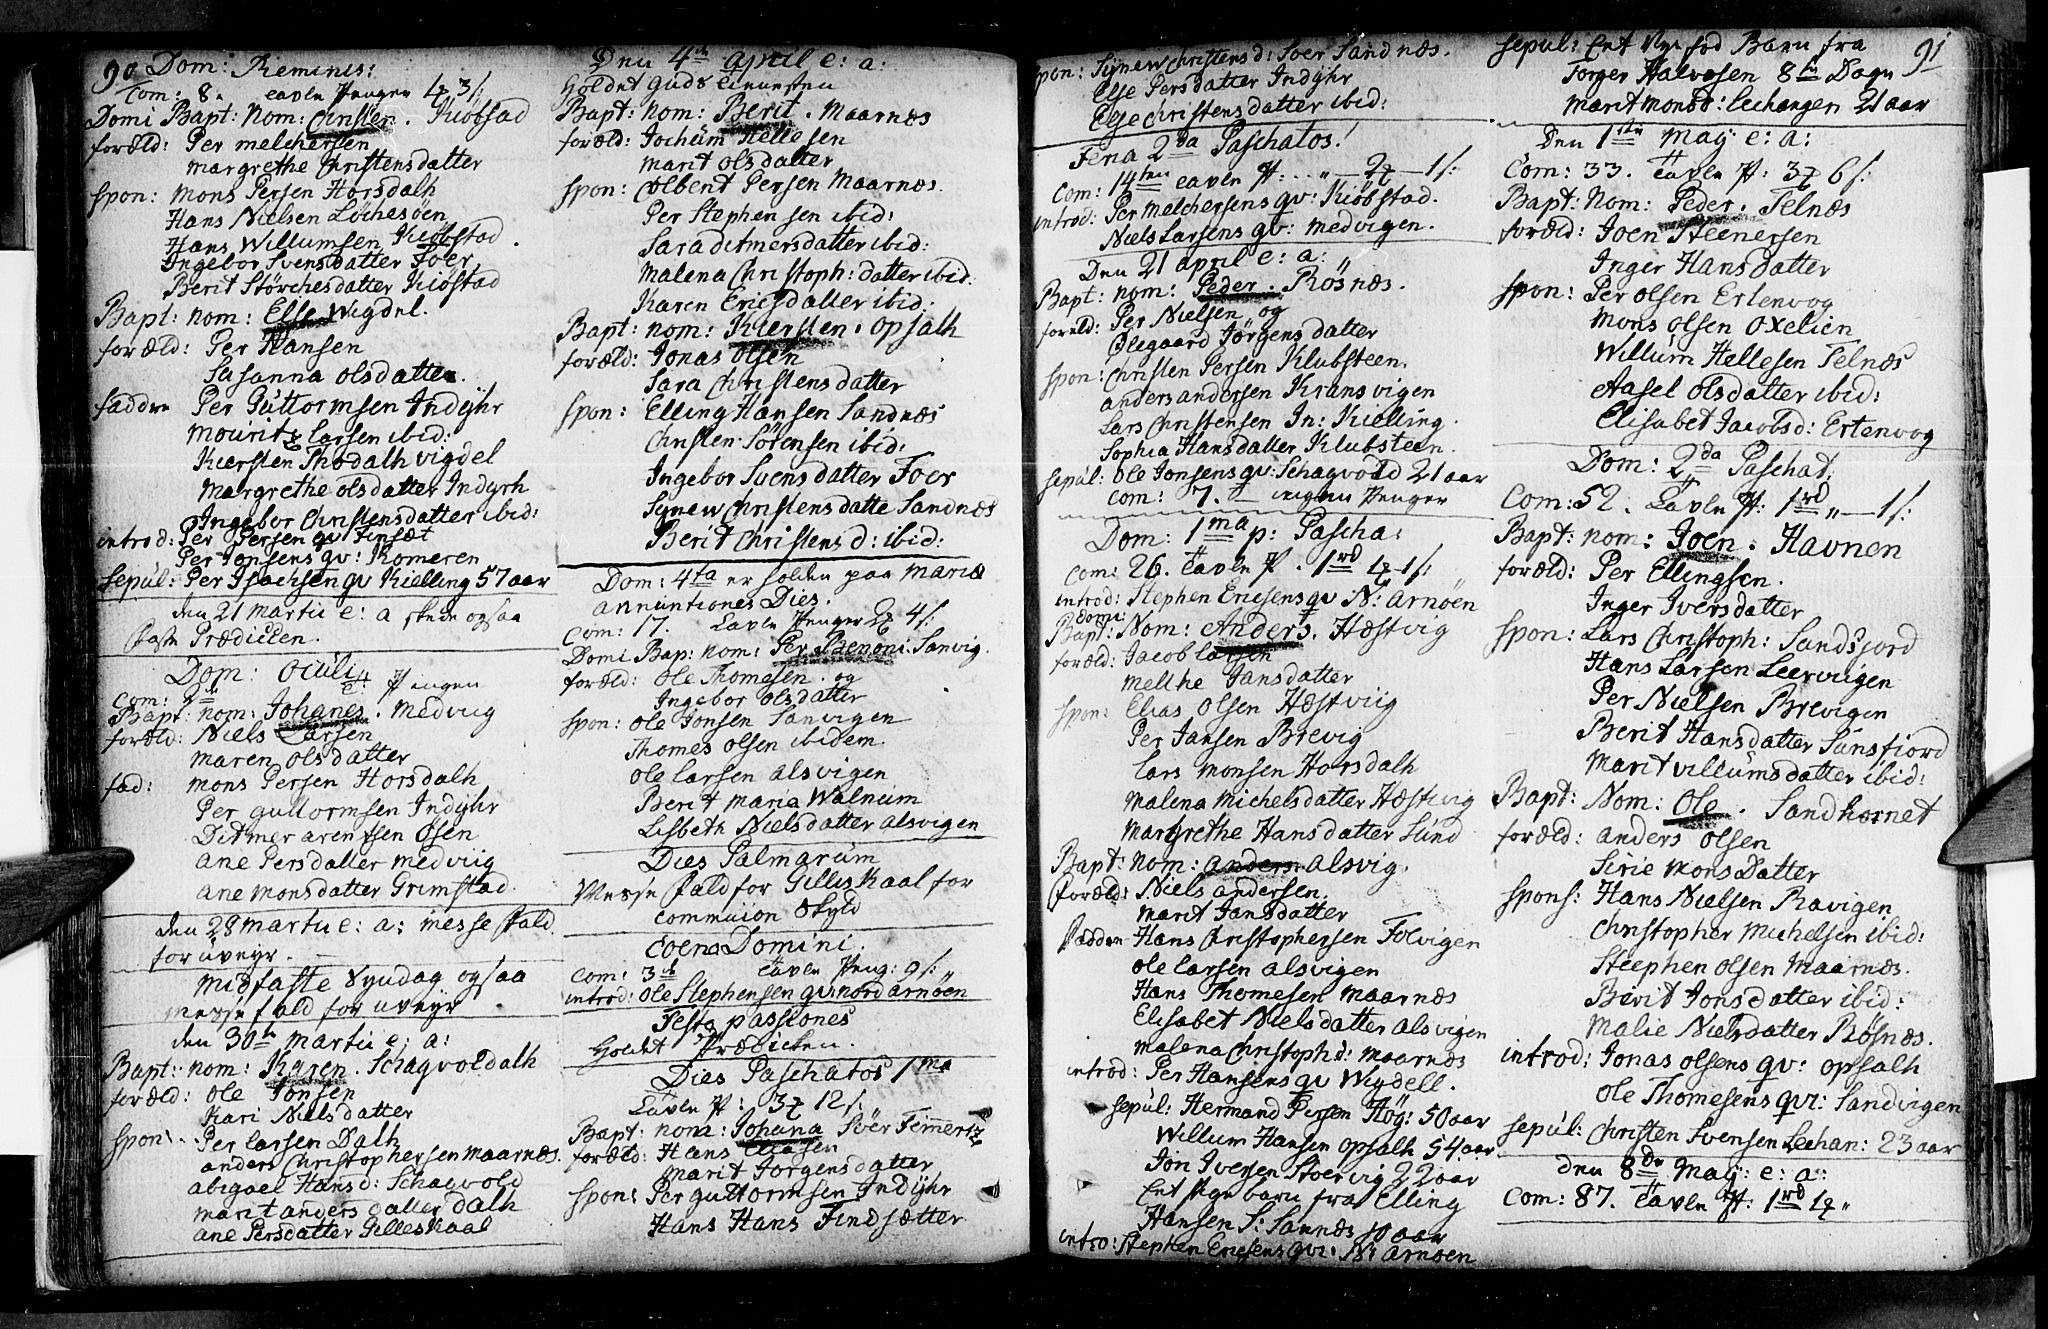 90 Dom: Reminis:
Com: 8. tavlen Penger 3 s:
Domi Bapt: Nom: Christen. Kiobstad
foræld: Per melchersen
margrethe Christensdatter
spon: mons Persen Horsdalh
Hans Nielsen Löchesöen
Hans Willumsen Kiöbstad
Ingebor Svensdatter Foer
Berit Störchesdatter Kiöstad
Bapt: nom: Else Wigdel.
foræld: Per Hansen
Susanna olsdatter.
faddre Per Guttormsen Indÿhr
Mouritz larsen ibid:
Kiersten Thodalh vigdel
Margrethe olsdatter Indyrh
Ingebor Christensdatter ibid:
introd: Per Persen qv Finsæt
Per Jonsens qv: Komeren
sepul: Per Isachsen qv Kielling 57 aar
den 21 martii e: a skede ogsaa
faste Prædicken.
Dom: Oculi
Com: P ingen
Bapt: nom: Johanes. medviig
foræld: Niels Larsen
maren olsdatter
fad: mons Persen Horsdalh
Per guttormsen Indÿhr
Ditmer arentsen Osen
ane Persdatter medviig
ane monsdatter Grimstad.
den 28 martii e: a: messefald
for uveyr.
midfaste Syndag ogsaa
messefald for uveyr
den 30te martii e: a:
Bapt: nom: Karen. Schagvoldalh
foræld: ole Jonsen
Kari Nielsdatter
spon: Per larsen Dalh
anders Christophersen maarnæs.
abigael Hansd: Schagvold
marit andersdatter dalh
ane Persdatter Gilleskaal
Den 4de April e: a:
Holdet Guds tienneste
Bapt: nom: Berit. Maarnæs
foræld: Jochum Hellesen
marit olsdatter
spon: Colbent Persen Maarnæs.
Per Stephensen ibid:
Sara ditmersdatter ibid:
malena Christoph: datter ibid:
Karen Ericsdatter ibid:
Bapt: nom: Kiersten. opsalh
foræld: Jonas olsen
Sara Christensdatter
spon: Elling Hansen Sandnæs
Christen Sörensen ibid:
Ingebor Svensdatter Foer
Synew Christensdatte Sandnæs
Berit Christens d: ibid:
Dom: 4ta er holden paa Mariæ
annuntiones Dies.
Com: 17. Tavlen Penger 2 4 s:
Domi Bap: nom: Per Parnoni Sanvig.
foræld: ole Thomesen. og
Ingebor olsdatter
spon: ole Jonsen Sanvigen
Thomes olsen ibidem.
ole larsen alsvigen
Berit maria Walnum
Lisbeth Nielsdatter alsvigen
Dies Palmarum
Messe fald for Gilleskaal for
communion Skyld
Coena Domini.
Com: 3 tavlen Peng: 9 s:
introd: ole Stephensen qv: nord arnöen
Festo passiones
Holdet Prædicken.
Dies Paschatos 1ma
Tavlen P: 3 12 s:
Bapt: nom: Johana Svér Timmert
foræld: Hans Eliasen
marit Jörgensdatter
spon: Per guttormsen Indÿhr
Hans Hans Findsætter
spon: Synew Christens d: Foer Sandnæs.
Else Persdatter Indÿhr
Else Christensdatter ibid:
Feria 2da Paschatos!
Com: 14ten tavlen P: 2 1 s:
introd: Per melchersens qv: Kiöbstad.
Niels Larsens qv: medvigen.
Den 21 april e: a:
Bapt: nom: Peder. Rösnæs.
foræld: Per Nielsen og
Olegaard Jörgensdatter
spon: Christen Persen Klubsteen.
anders andersen Kransvigen
Lars Christensen In: Kielling.
Sophia Hansdatter Klubsteen.
sepul: ole Jonsens qv: Schagvold 21 aar
Com: 7. ingen Penger
Dom: 1ma p: Pascha:
Com: 26. Tavlen P. 1 rd 1 s:
introd: Stephen Ericsens qv N: Arnöen
Domi
Bapt: Nom: Anders. Hæstvig
foræld: Jacob larsen
melthe Jansdatter
spon: Elias Olsen Hæstviig
Per Jansen Brevig
lars monsen Horsdalh
Malena Michelsdatter Hæstvig
Margrethe Hansdatter Sund
Bapt: nom: anders. alsvig.
foræld: Niels andersen
Marit Jansdatter
Faddere Hans Christophersen Folvigen
ole larsen alsvigen
Hans Thomesen maarnæs
Elisabet Nielsdatter alsvigen
malena Christoph d: maarnæs
introd: Per Hansens qv Wigdell.
sepul: Hermand Persen Hög: 50 aar
Willum Hansen opsalh 54 aar
Jon Iversen Stoervig 22 aar
Hansen S: Sannæs 10 aar
intro: Stephen Ericsens qvi: N: arnöen
sepul: Ent Nye fod Barn fra
91
Torger Halvorsen 8te Dage
Marit monsd: Lechangen 21 aar
Den 1ste May e: a:
Com: 33. Tavlen P: 3 6 s:
Bapt: Nom: Peder. Telnæs
foræld: Joen Steenersen
Inger Hansdatter
spon: Per olsen Ertenvog
Mons olsen Oxelien
Willum Hellesen Telnæs
Aasel olsdatter ibid:
Elisabet Jacobsd: Ertenvog
Dom: 2da Paschat:
Com: 52. Tavlen P: 1rd „ 1 s:
Bapt: nom: Joen. Havnen
foræld: Per Ellingsen.
Inger Iversdatter
spon: Lars Christoph: Sandsjord
Hans Larsen Leervigen
Per Nielsen Brevigen
Berit Hansdatter Sunsfiord
Marit villumsdatter ibid:
Bapt: Nom: Ole. Sandhornet
foræld: anders olsen
Sirie Mons Datter
Spons: Hans Nielsen Ravigen
Christopher Michelsen ibid:
Steephen olsen Maarnæs.
Berit Jonsdatter ibid:
Malie Nielsdatter Rösnæs.
introd: Jonas olsens qv: opsalh
ole Thomesens qvi: Sandvigen
sepul: Christen Svensen Lechan: 23 aar
den 8de May: e: a:
Com: 87. Tavlen P: 1rd 1